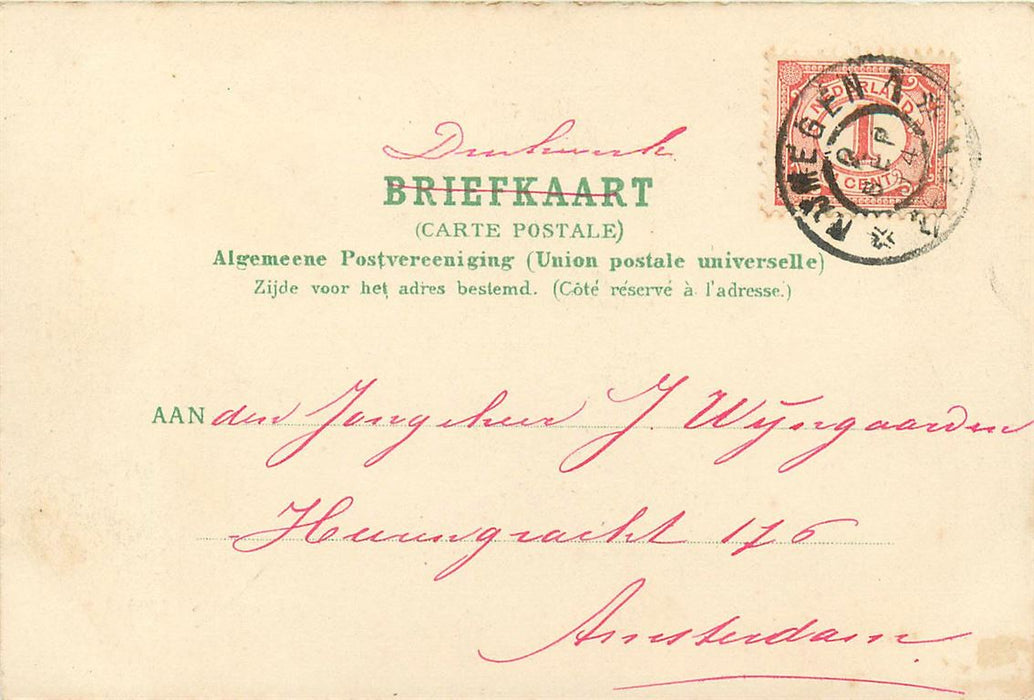 NEDERLAND
1
CENT
NIJMEGEN 1
SEP
Drukwerk
BRIEFKAART
(CARTE POSTALE)
Algemeene Postvereeniging (Union postale universelle)
Zijde voor het adres bestemd. (Côté réservé à l'adresse.)
AAN den Jongeheer J. Wijngaarden
Heerengracht 176
Amsterdam